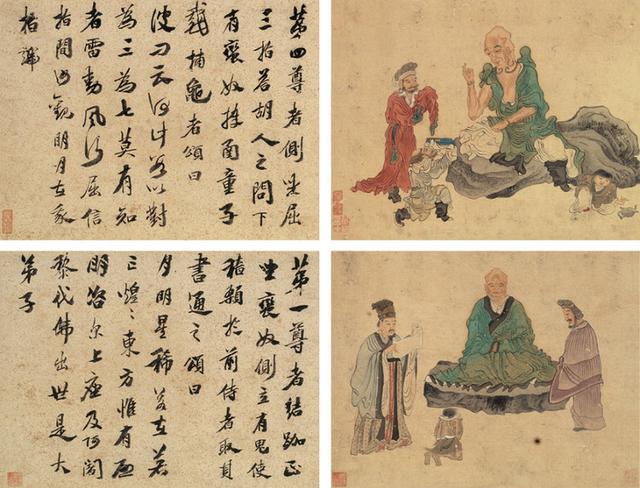 第四尊者側坐屈
三指答胡人之問下
有蠻奴捧函童子
戲捕龜者頌曰
彼問云何計數以對
為三為七莫有知
者雷動風行屈信
指間汝觀明月在我
指端
第一尊者結跏正
坐蠻奴側立有鬼使
稽顙於前侍者取其
書通之頌曰
月明星稀若在若
亡煌〻東方惟有啟
明咨尔上座及阿闍
黎代佛出世是大
弟子